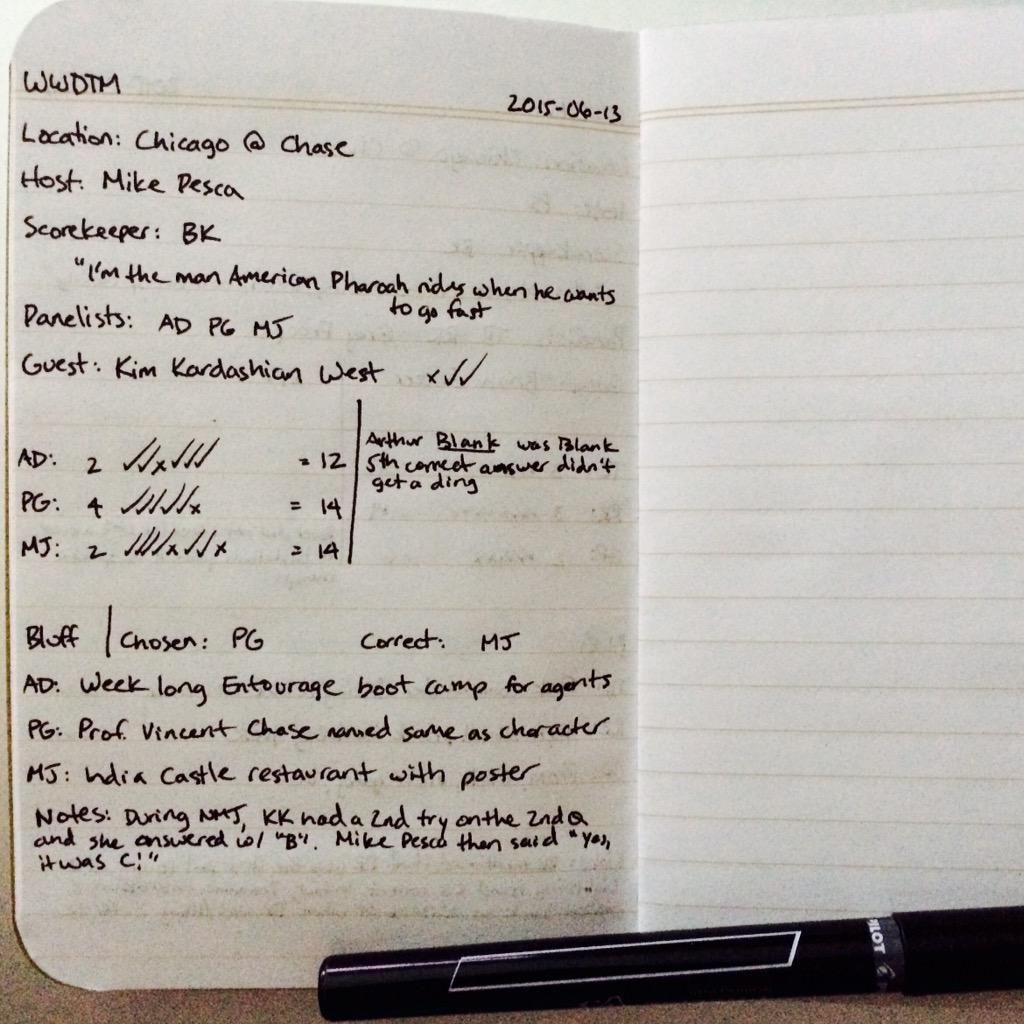 WWDTM
2015-06-13
Location: Chicago @ Chase
Host: Mike Pesca
Scorekeeper: BK
"I'm the man American Pharoah rides when he wants
to go fast
Panelists: AD PG MJ
Guest: Kim Kardashian West x✓✓
AD: 2 ✓✓x✓✓✓ = 12
PG: 4 ✓✓✓✓✓x = 14
MJ: 2 ✓✓✓✓x✓✓x = 14
Arthur Blank was Blank
5th correct answer didn't
get a ding
Bluff | Chosen: PG Correct: MJ
AD: Week long Entourage boot camp for agents
PG: Prof. Vincent Chase named same as character
MJ: India Castle restaurant with poster
Notes: During NMJ, KK had a 2nd try on the 2nd Q
and she answered w/ "B". Mike Pesca then said "Yes,
it was C!"
PILOT